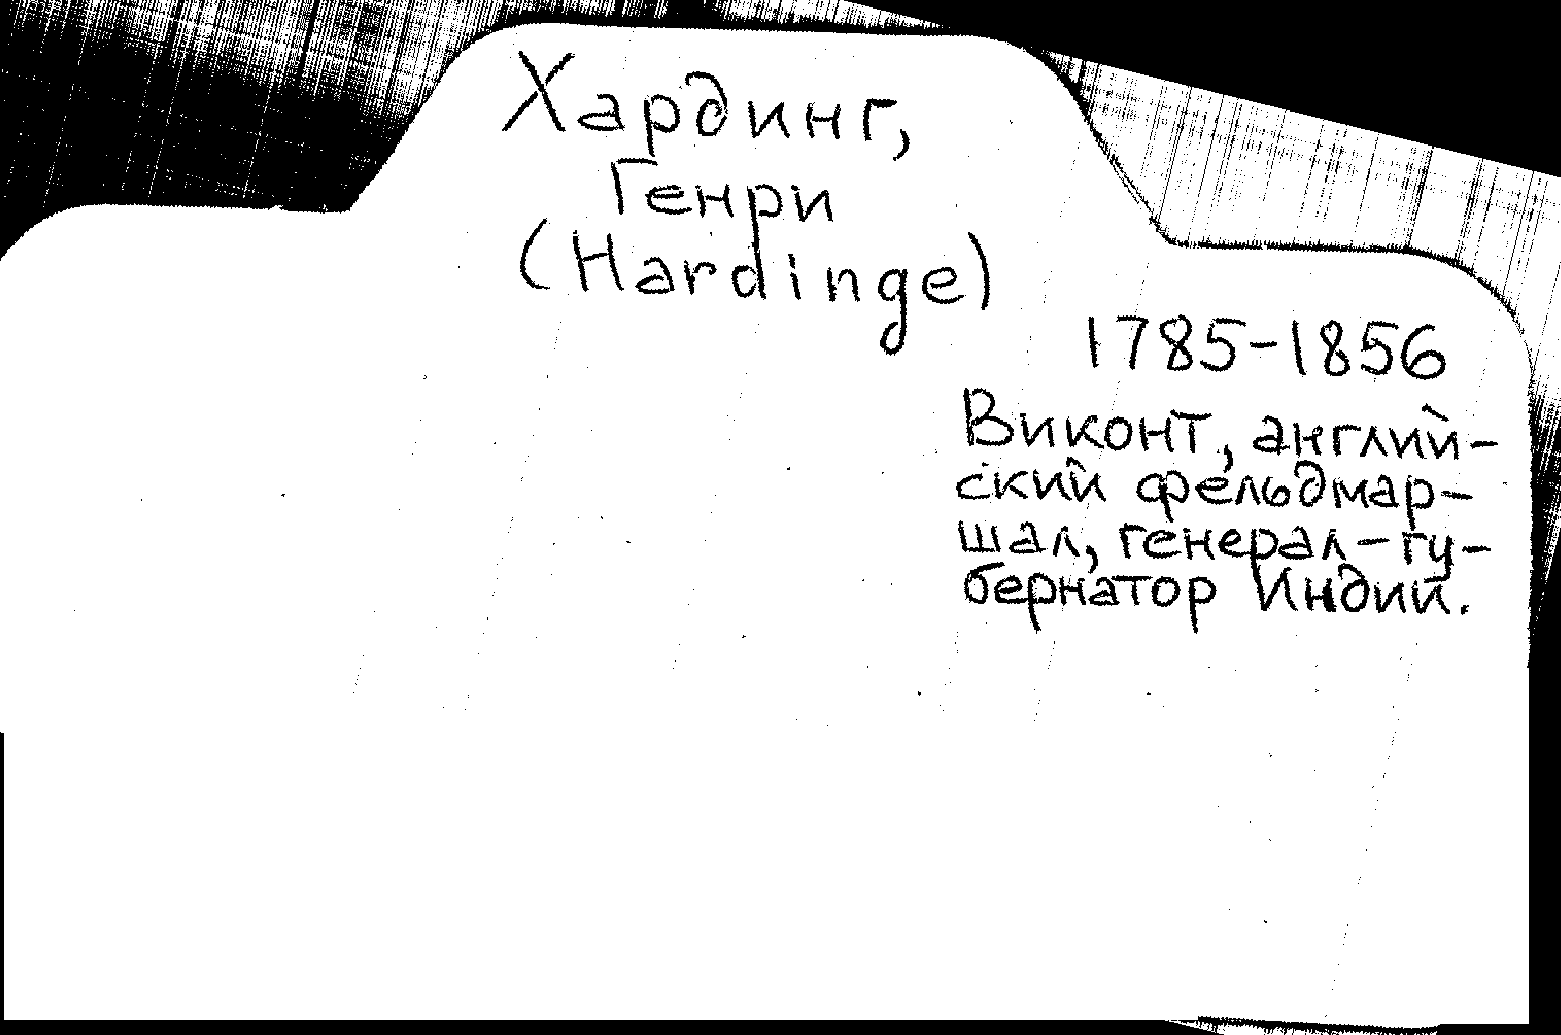 Хардинг,
Генри
(Hardinge)
1785-1856
Виконт, англий-
ский фельдмар-
шал, генерал-гу-
бернатор Индии.